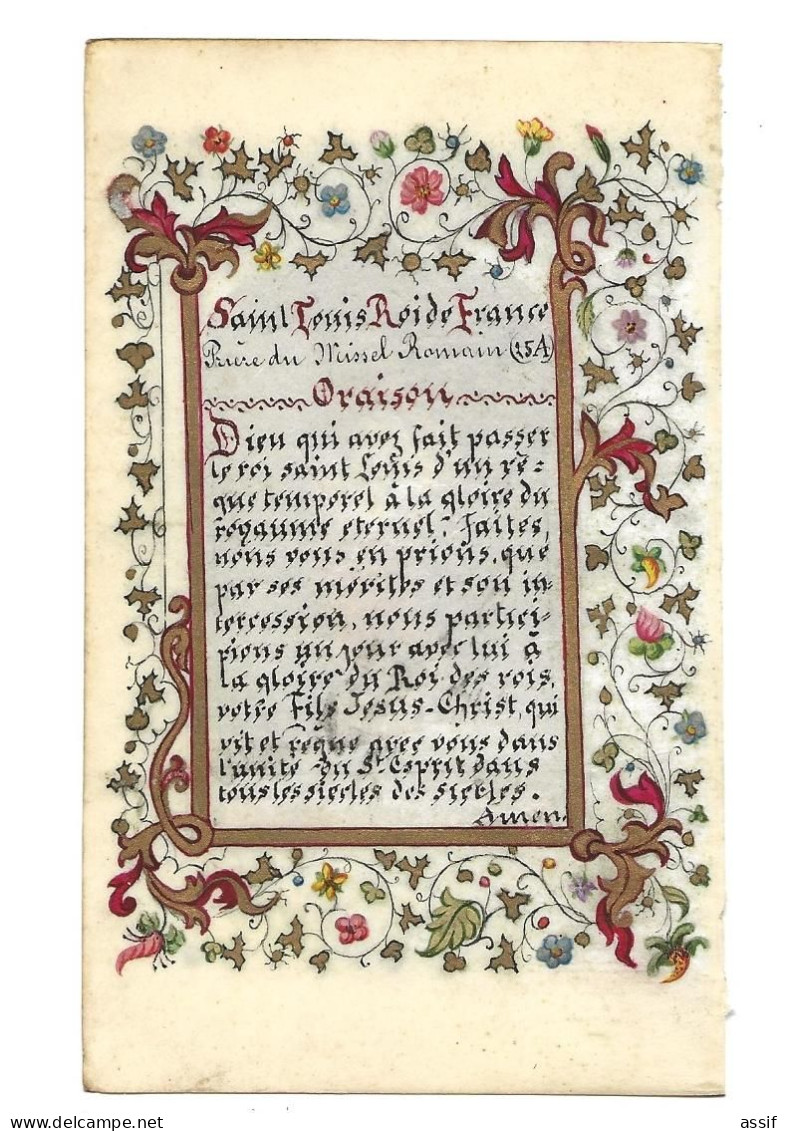 Saint Louis Roi de France
Prière du Missel Romain (25A)
Oraison
Dieu qui avez fait passer
le roi saint Louis d'un rè-
gne temporel à la gloire du
royaume eternel : faites,
nous vous en prions, que
par ses mérites et son in-
tercession, nous partici-
pions un jour avec lui à
la gloire du Roi des rois,
votre Fils Jesus-Christ, qui
vit et règne avec vous dans
l'unité du St Esprit dans
tous les siecles des siecles.
Amen.
delcampe.net
assif